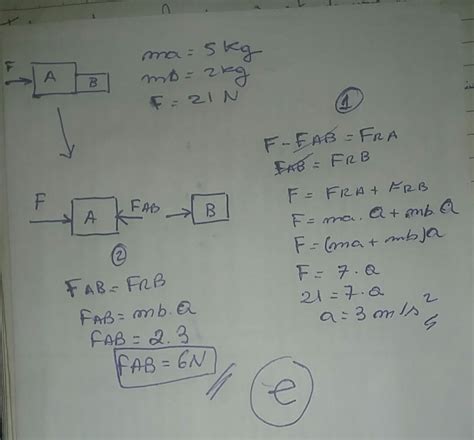 ma = 5kg
mb = 2kg
F = 21 N
F
A
B
F
A
FAB
B
①
F - FAB = FRA
FAB = FRB
F = FRA + FRB
F = ma.a + mb.a
F = (ma + mb)a
F = 7.a
21 = 7.a
a = 3 m/s²
②
FAB = FRB
FAB = mb.a
FAB = 2.3
FAB = 6N
e